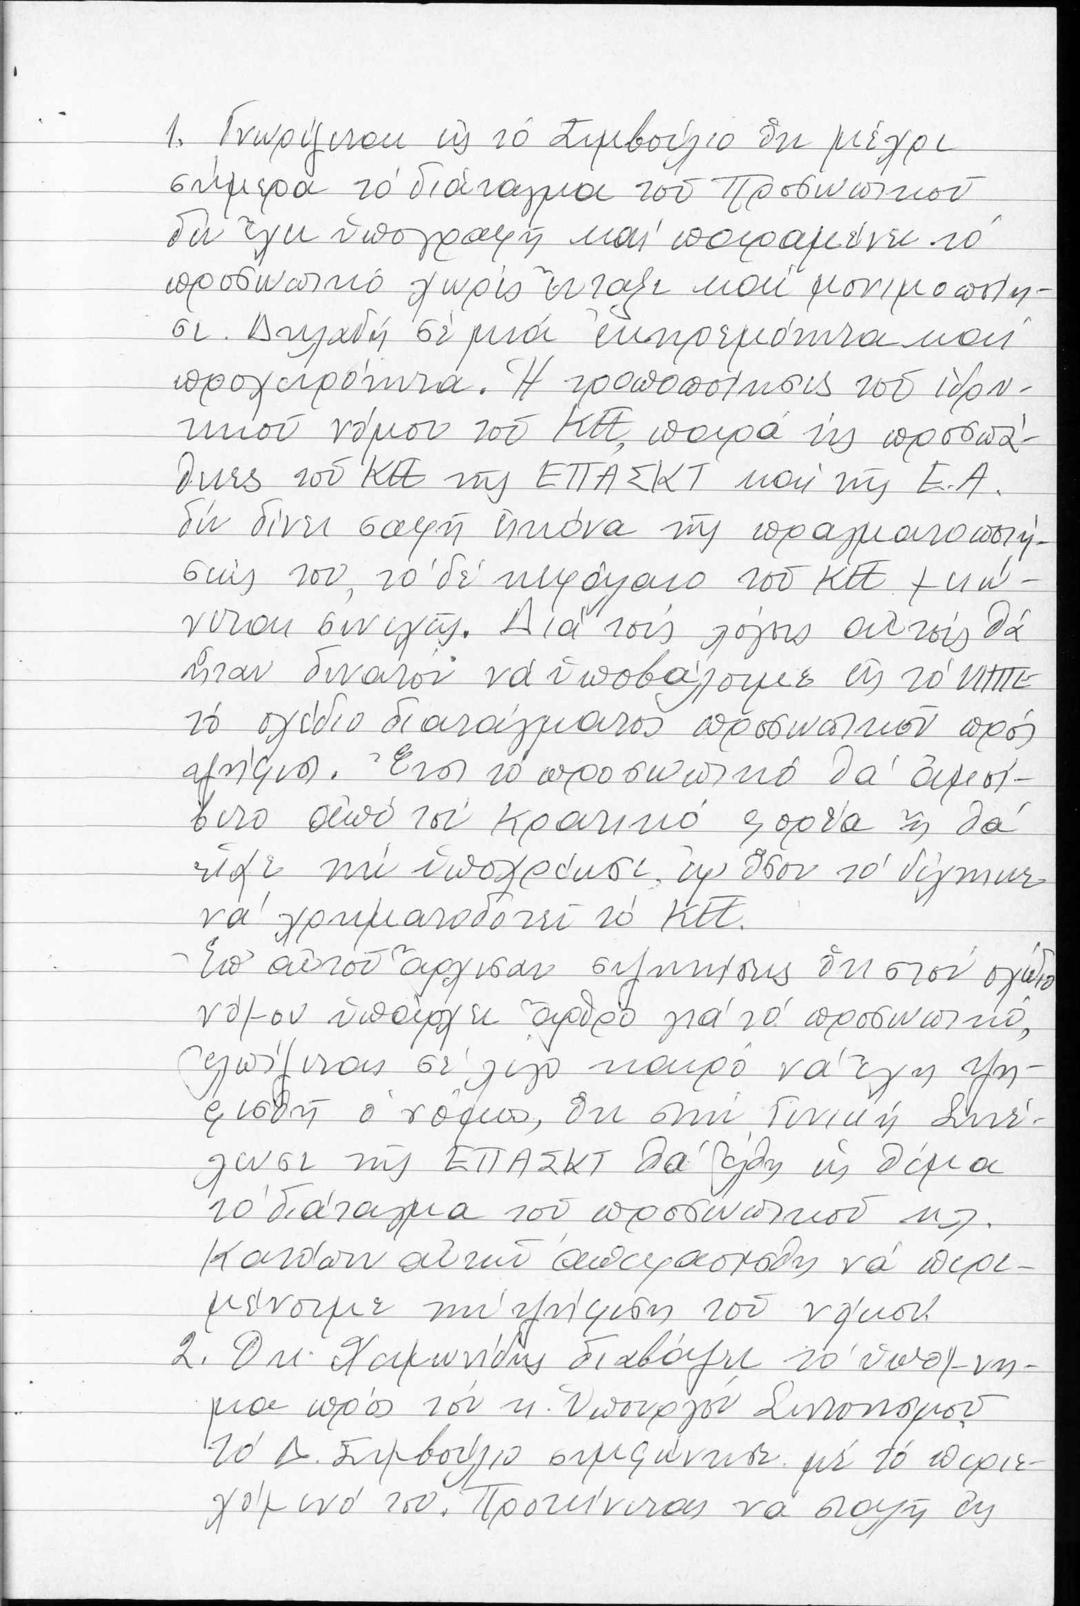 1. Γνωρίζεται εἰς τό Συμβούλιο ὅτι μέχρι
σήμερα τό διάταγμα τοῦ Προσωπικοῦ
δέν ἔχει ὑπογραφῆ καί παραμένει τό
προσωπικό χωρίς ἔνταξι καί μονιμοποίη-
σι. Δηλαδή σέ μιά ἐκκρεμότητα καί
προχειρότητα. Ἡ τροποποίησις τοῦ ἱδρυ-
τικοῦ νόμου τοῦ ΚΠ, παρά τίς προσπά-
θειες τοῦ ΚΠ τῆς ΕΠΑΣΚΤ καί τῆς Ε.Α.
δέν δίνει σαφῆ εἰκόνα τῆς πραγματοποιή-
σεώς του, τό δέ κεφάλαιο τοῦ ΚΠ μειώ-
νεται συνεχῶς. Διά τούς λόγους αὐτούς θά
ἦταν δυνατόν νά ὑποβάλουμε εἰς τό ΥΠΠΕ
τό σχέδιο διατάγματος προσωπικοῦ πρός
ψήφισι. Ἔτσι τό προσωπικό θά ἀμοί-
βετο ἀπό τόν Κρατικό φορέα ἤ θά
εἶχε τήν ὑποχρέωσι, ἐφ' ὅσον τό δέχτηκε
νά χρηματοδοτεῖ τό ΚΠ.
Ἐπ' αὐτοῦ ἄρχισαν συζητήσεις ὅτι στόν σχέδιο
νόμου ὑπάρχει ἄρθρο γιά τό προσωπικό,
ἐλπίζεται σέ λίγο καιρό νά ἔχη ψη-
φισθῆ ὁ νόμος, ὅτι στήν Γενική Συνέ-
λευσι τῆς ΕΠΑΣΚΤ θά ἔλθη εἰς θέμα
τό διάταγμα τοῦ προσωπικοῦ κλ.
Κατόπιν αὐτῶν ἀπεφασίσθη νά περι-
μένουμε τήν ψήφιση τοῦ νόμου.
2. Ὁ κ. διαβάζει τό ὑπόμνη-
μα πρός τόν κ. Ὑπουργόν Συντονισμοῦ
τό Δ. Συμβούλιο συμφώνησε μέ τό περιε-
χόμενό του. Προτείνεται νά σταλῆ εἰς